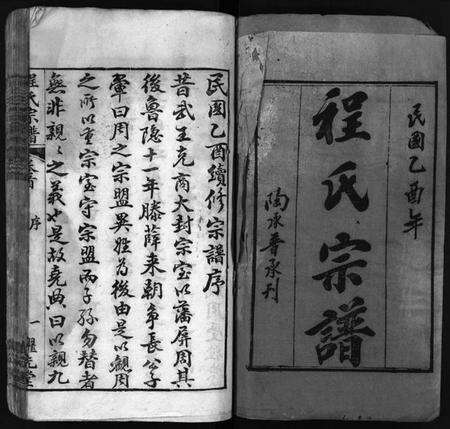 民國乙酉年
程氏宗譜
陶承善承刊
民國乙酉續修宗譜序
昔武王克商大封宗室以藩屏周其
後魯隱十一年滕薛来朝争長公子
翬曰周之宗盟異姓為後由是以觀周
之所以重宗室守宗盟而子孫勿替者
無非親之義也是故堯典曰以親九
程氏宗譜
序
一